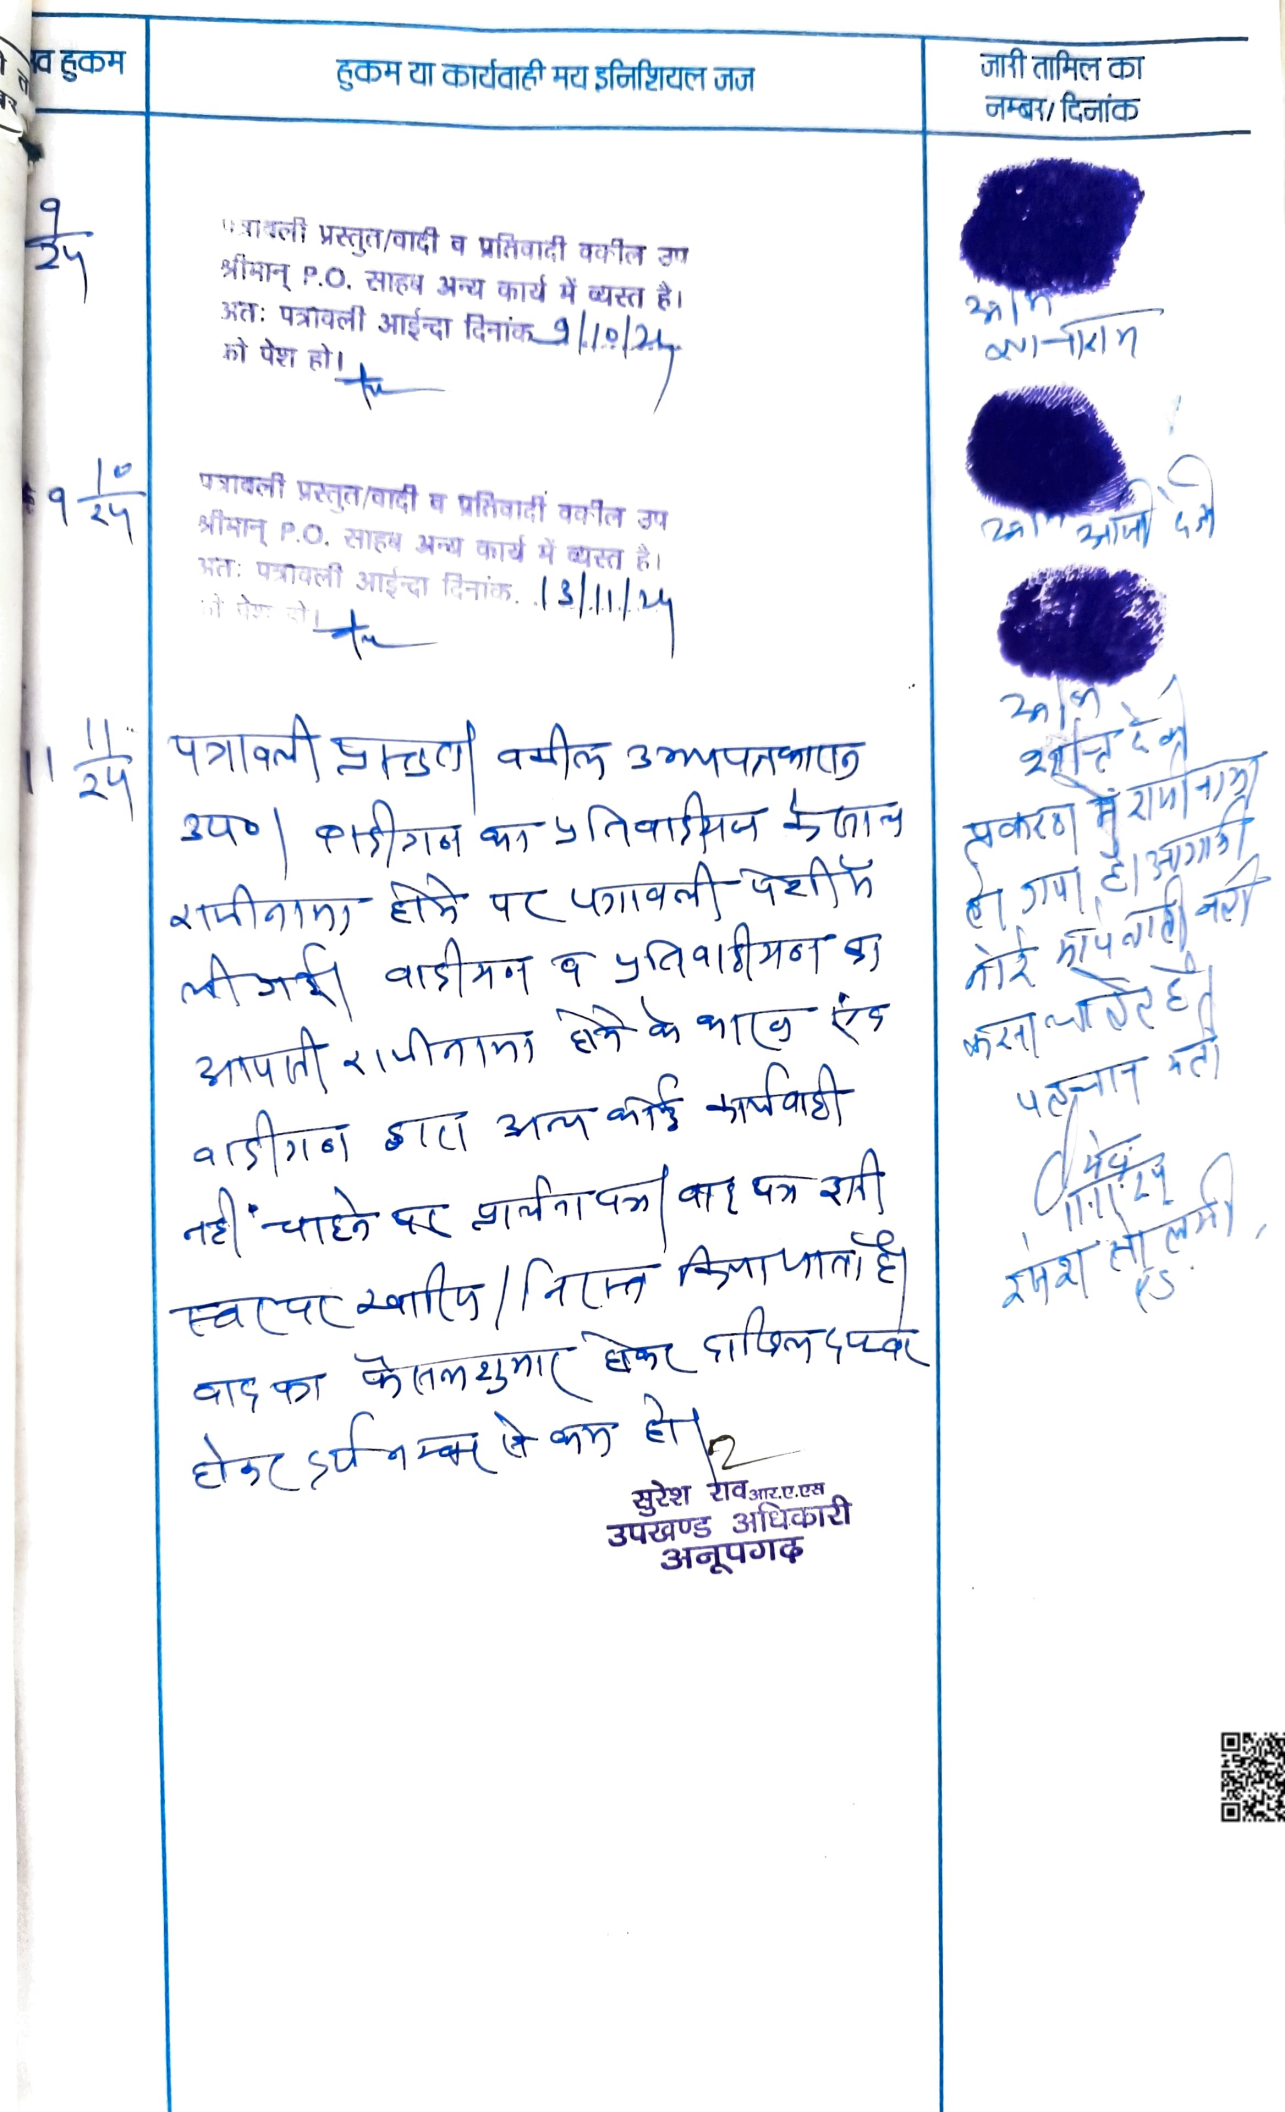 व हुकम
हुकम या कार्यवाही मय इनिशियल जज
जारी तामिल का
नम्बर/दिनांक
9
24
पत्रावली प्रस्तुत/वादी व प्रतिवादी वकील उप
श्रीमान् P.O. साहब अन्य कार्य में व्यस्त है।
अतः पत्रावली आईन्दा दिनांक 9/10/24
को पेश हो।
9 10
24
पत्रावली प्रस्तुत/वादी व प्रतिवादी वकील उप
श्रीमान् P.O. साहब अन्य कार्य में व्यस्त है।
अतः पत्रावली आईन्दा दिनांक. 13/11/24
को पेश हो।
11 11
24
पत्रावली प्रस्तुत। वकील उभयपक्षकारान
उप०। वादीगन का प्रतिवादीगन के साथ
राजीनामा होने पर पत्रावली पेशी में
ली गई। वादीगन व प्रतिवादीगन का
आपसी राजीनामा होने के कारण एंव
वादीगन द्वारा अन्य कोई कार्यवाही
नहीं चाहने पर प्रार्थना पत्र/वाद पत्र इसी
स्तर पर खारिज/निरस्त किया जाता है।
वाद का फैसल शुमार होकर दाखिल दफ्तर
होकर दर्ज नम्बर से कम हो।
सुरेश राव आर.ए.एस
उपखण्ड अधिकारी
अनूपगढ़
देवी
प्रकरण में राजीनामा
हो गया है। आगामी
कोई कार्यवाही नही
करना चाहते है
पहचान कर्ता
11/11/24